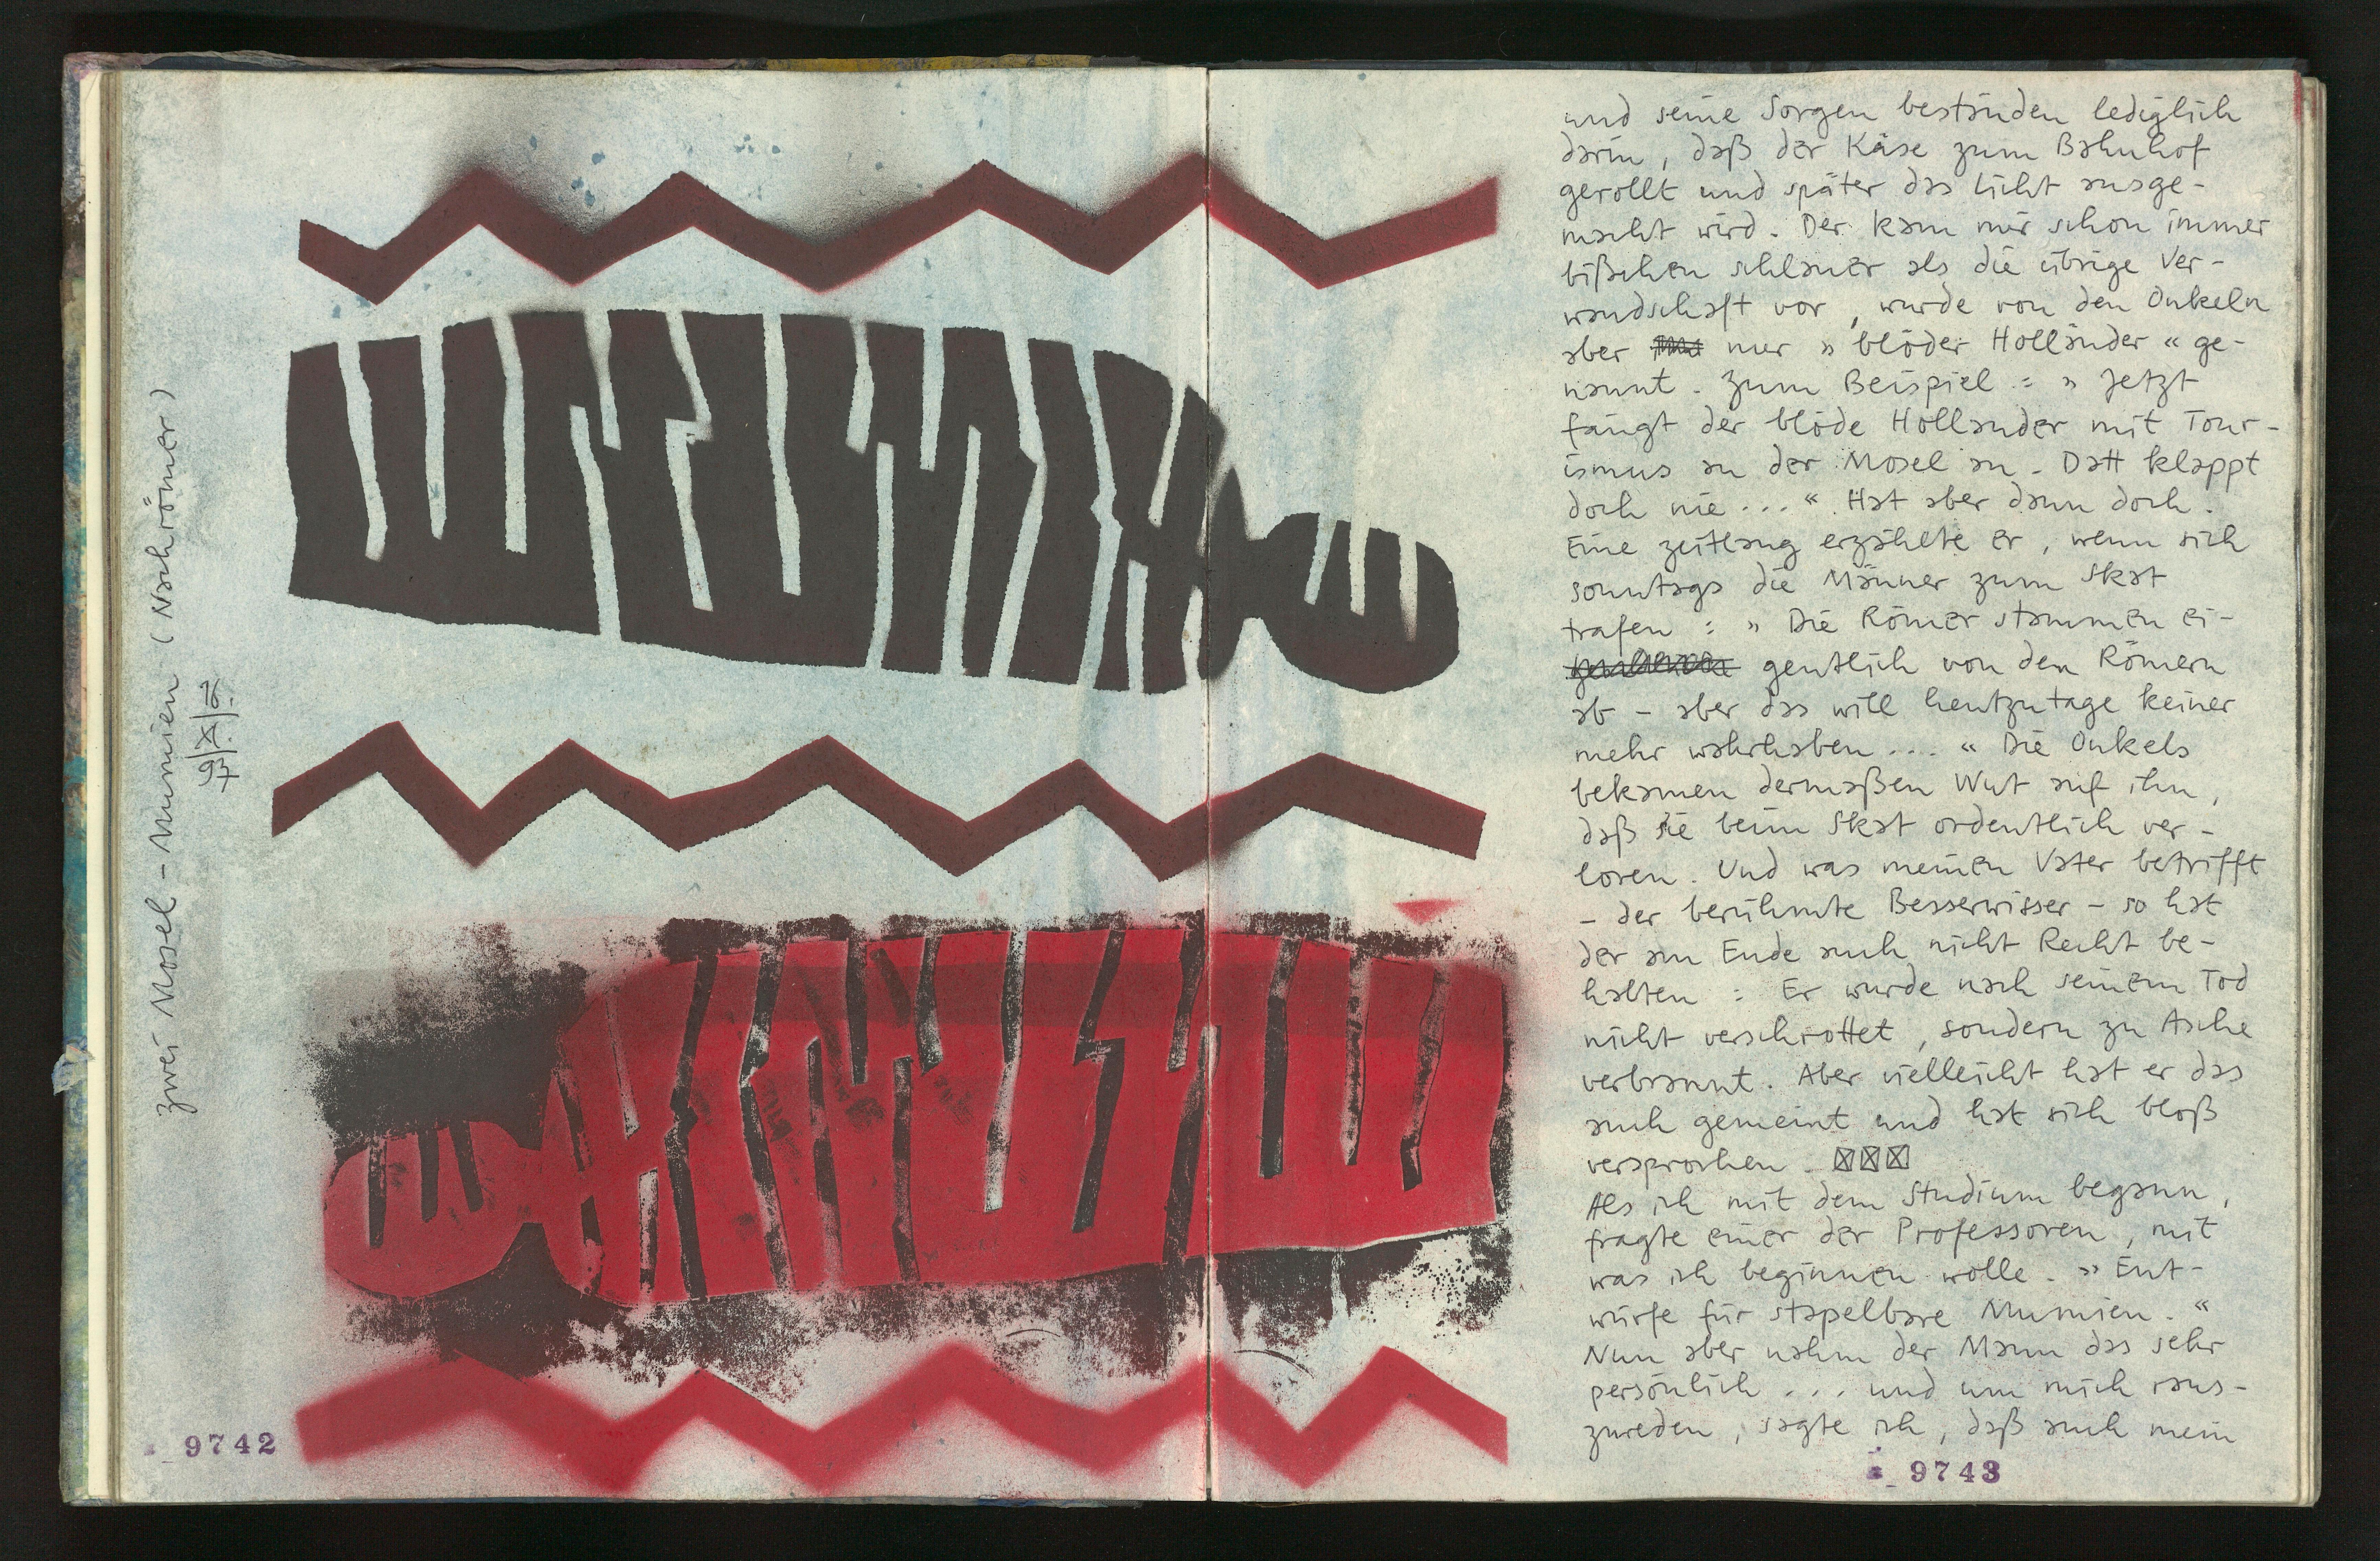 zwei Mosel-Mumien (Nachrömer)
16|XI|97
9742
und seine Sorgen bestünden lediglich
darin, daß der Käse zum Bahnhof
gerollt und später das Licht ausge-
macht wird. Der kam mir schon immer
bißchen schlauer als die übrige Ver-
wandschaft vor, wurde von den Onkeln
aber nur »blöder Holländer« ge-
nannt. Zum Beispiel: » Jetzt
fängt der blöde Holländer mit Tour-
ismus an der Mosel an. Datt klappt
doch nie...« Hat aber dann doch.
Eine zeitlang erzählte er, wenn sich
sonntags die Männer zum Skat
trafen: » Die Römer stammen ei-
gentlich von den Römern
ab - aber das will heutzutage keiner
mehr wahrhaben....« Die Onkels
bekamen dermaßen Wut auf ihn,
daß sie beim Skat ordentlich ver-
loren. Und was meinen Vater betrifft
- der berühmte Besserwisser - so hat
der am Ende auch nicht Recht be-
halten: Er wurde nach seinem Tod
nicht verschrottet, sondern zu Asche
verbrannt. Aber vielleicht hat er das
auch gemeint und hat sich bloß
versprochen.
Als ich mit dem Studium begann,
fragte einer der Professoren, mit
was ich beginnen wolle. » Ent-
würfe für stapelbare Mumien.«
Nun aber nahm der Mann das sehr
persönlich... und um mich raus-
zureden, sagte ich, daß auch mein
9743